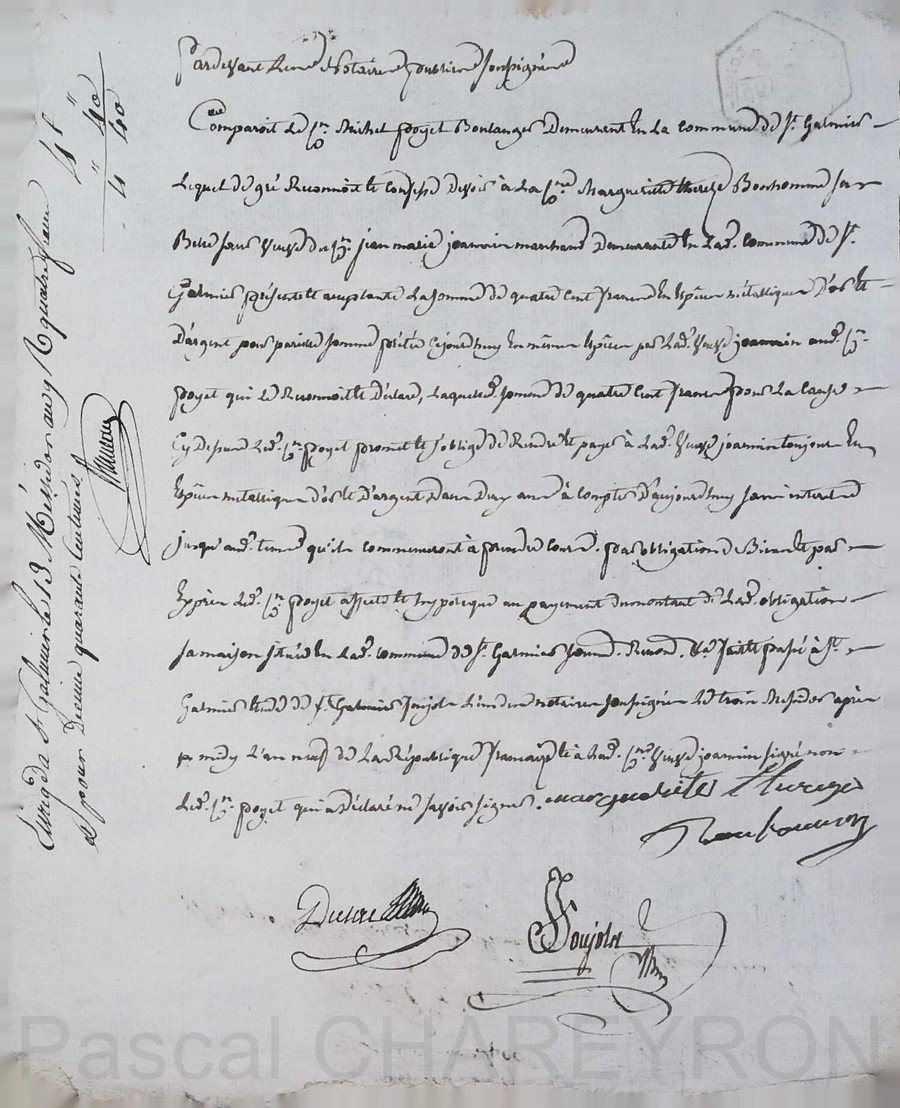 Pardevant Les Notaires publics soussignés
Comparoit Le Sr. Michel poyet Boulanger Demeurant En La commune de St. Galmier
Lequel de gré Reconnoit et confesse devoir à La Sne. Margueritte therese Bonhomme
veuve du Sr. jean marie joannin marchand Demeurante En Lad. commune de St.
Galmier présente et acceptante La somme de quatre cent francs En Espèces métalliques D'or et
D'argent pour pareille somme prêtée cejourd'huy En mêmes Espèces par Lad. veuve joannin aud. Sr.
poyet qui Le Reconnoit et Déclare, Laquelle somme de quatre cent francs pour La cause
Cy Dessus Led. Sr. poyet promet et s'oblige de Rendre et payer à Lad. veuve joannin toujours En
Espèces métalliques D'or et D'argent Dans Deux ans à compter D'aujourd'huy sans interets
jusqu'aud. terme qu'ils commenceront à prendre cours. par obligation de Biens et par
Exprès Led. Sr. poyet affecte et hypotèque au payement du montant de Lad. obligation
sa maison située En Lad. commune de St. Galmier fait et passé à St.
Galmier Etude de Soujols L'un des notaires soussignés Le trois Messidor après
midy L'an neuf de La République française et à Lad. veuve joannin signé non
Led. Sr. poyet qui a Déclaré ne savoir signer. marguerite Therese
Bonhomme
Soujols
Enregt. à St. Galmier le 13 Messidor an 9 R quatre francs
et pour Decime quarante Centimes
4f
" 40
4 40
Pascal CHAREYRON